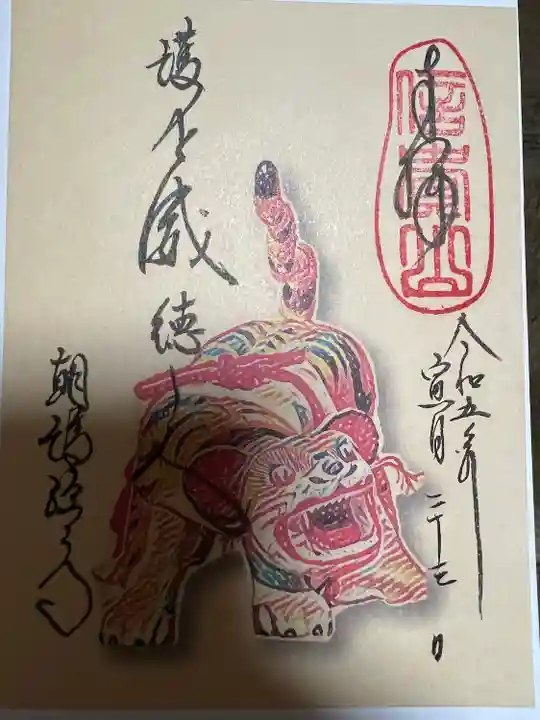 奉拝
信貴山
令和五年
寅月二十三日
威徳
朝護孫子寺